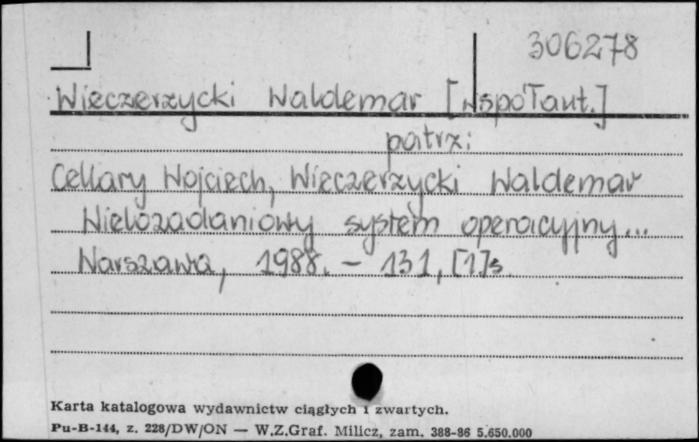 306278
Wieczerzycki Waldemar [współaut.]
patrz:
Cellary Wojciech, Wieczerzycki Waldemar
Wielozadaniowy system operacyjny...
Warszawa, 1988. - 131, [1]s.
Karta katalogowa wydawnictw ciągłych i zwartych.
Pu-B-144, z. 228/DW/ON — W.Z.Graf. Milicz, zam. 388-86 5.650.000